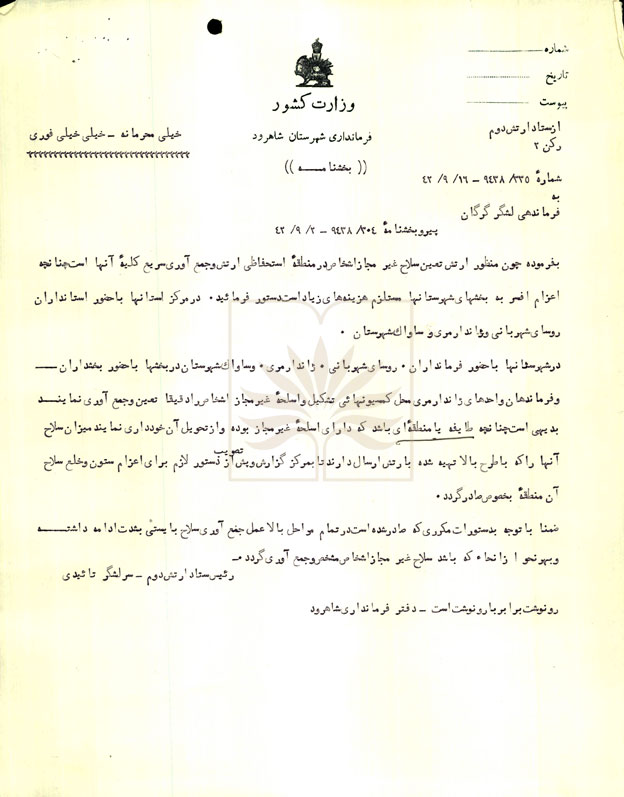 شماره
تاریخ
پیوست
وزارت کشور
فرمانداری شهرستان شاهرود
(( بخشنامـــه ))
خیلی محرمانه – خیلی خیلی فوری
از ستاد ارتش دوم
رکن ۲
شمارهٔ ۹۴۳۸/۳۳۵ – ۴۲/۹/۱۶
به
فرماندهی لشگر گرگان
پیرو بخشنامهٔ ۹۴۳۸/۳۰۴ – ۴۲/۹/۲
بفرموده چون منظور ارتش تعیین سلاح غیر مجاز اشخاص در منطقهٔ استحفاظی ارتش و جمع آوری سریع کلیهٔ آنها است چنانچه
اعزام افسر به بخشهای شهرستانها مستلزم هزینه‌های زیاد است دستور فرمائید . در مرکز استانها با حضور استانداران
روسای شهربانی و ژاندارمری و ساواک شهرستان .
در شهرستانها با حضور فرمانداران . روسای شهربانی . ژاندارمری . و ساواک شهرستان در بخشها با حضور بخشداران ــــ
و فرماندهان واحدهای ژاندارمری محل کمیسیونهائی تشکیل و اسلحهٔ غیر مجاز اشخاص را دقیقا تعیین و جمع آوری نماینـــد
بدیهی است چنانچه طایفه یا منطقه‌ای باشد که دارای اسلحهٔ غیر مجاز بوده و از تحویل آن خودداری نمایند میزان سلاح
آنها را که با طرح بالا تهیه شده بارتش ارسال دارند تا بمرکز گزارش و پس از تصویب دستور لازم برای اعزام ستون و خلع سلاح
آن منطقهٔ بخصوص صادر گردد .
ضمنا با توجه بدستورات مکرری که صادر شده است در تمام مراحل بالا عمل جمع آوری سلاح بایستی بشدت ادامه داشتـــه
و بهر نحو از انحاء که باشد سلاح غیر مجاز اشخاص مشخص و جمع آوری گردد ــ
رئیس ستاد ارتش دوم – سرلشگر تائیدی
رونوشت برابر با رونوشت است – دفتر فرمانداری شاهرود